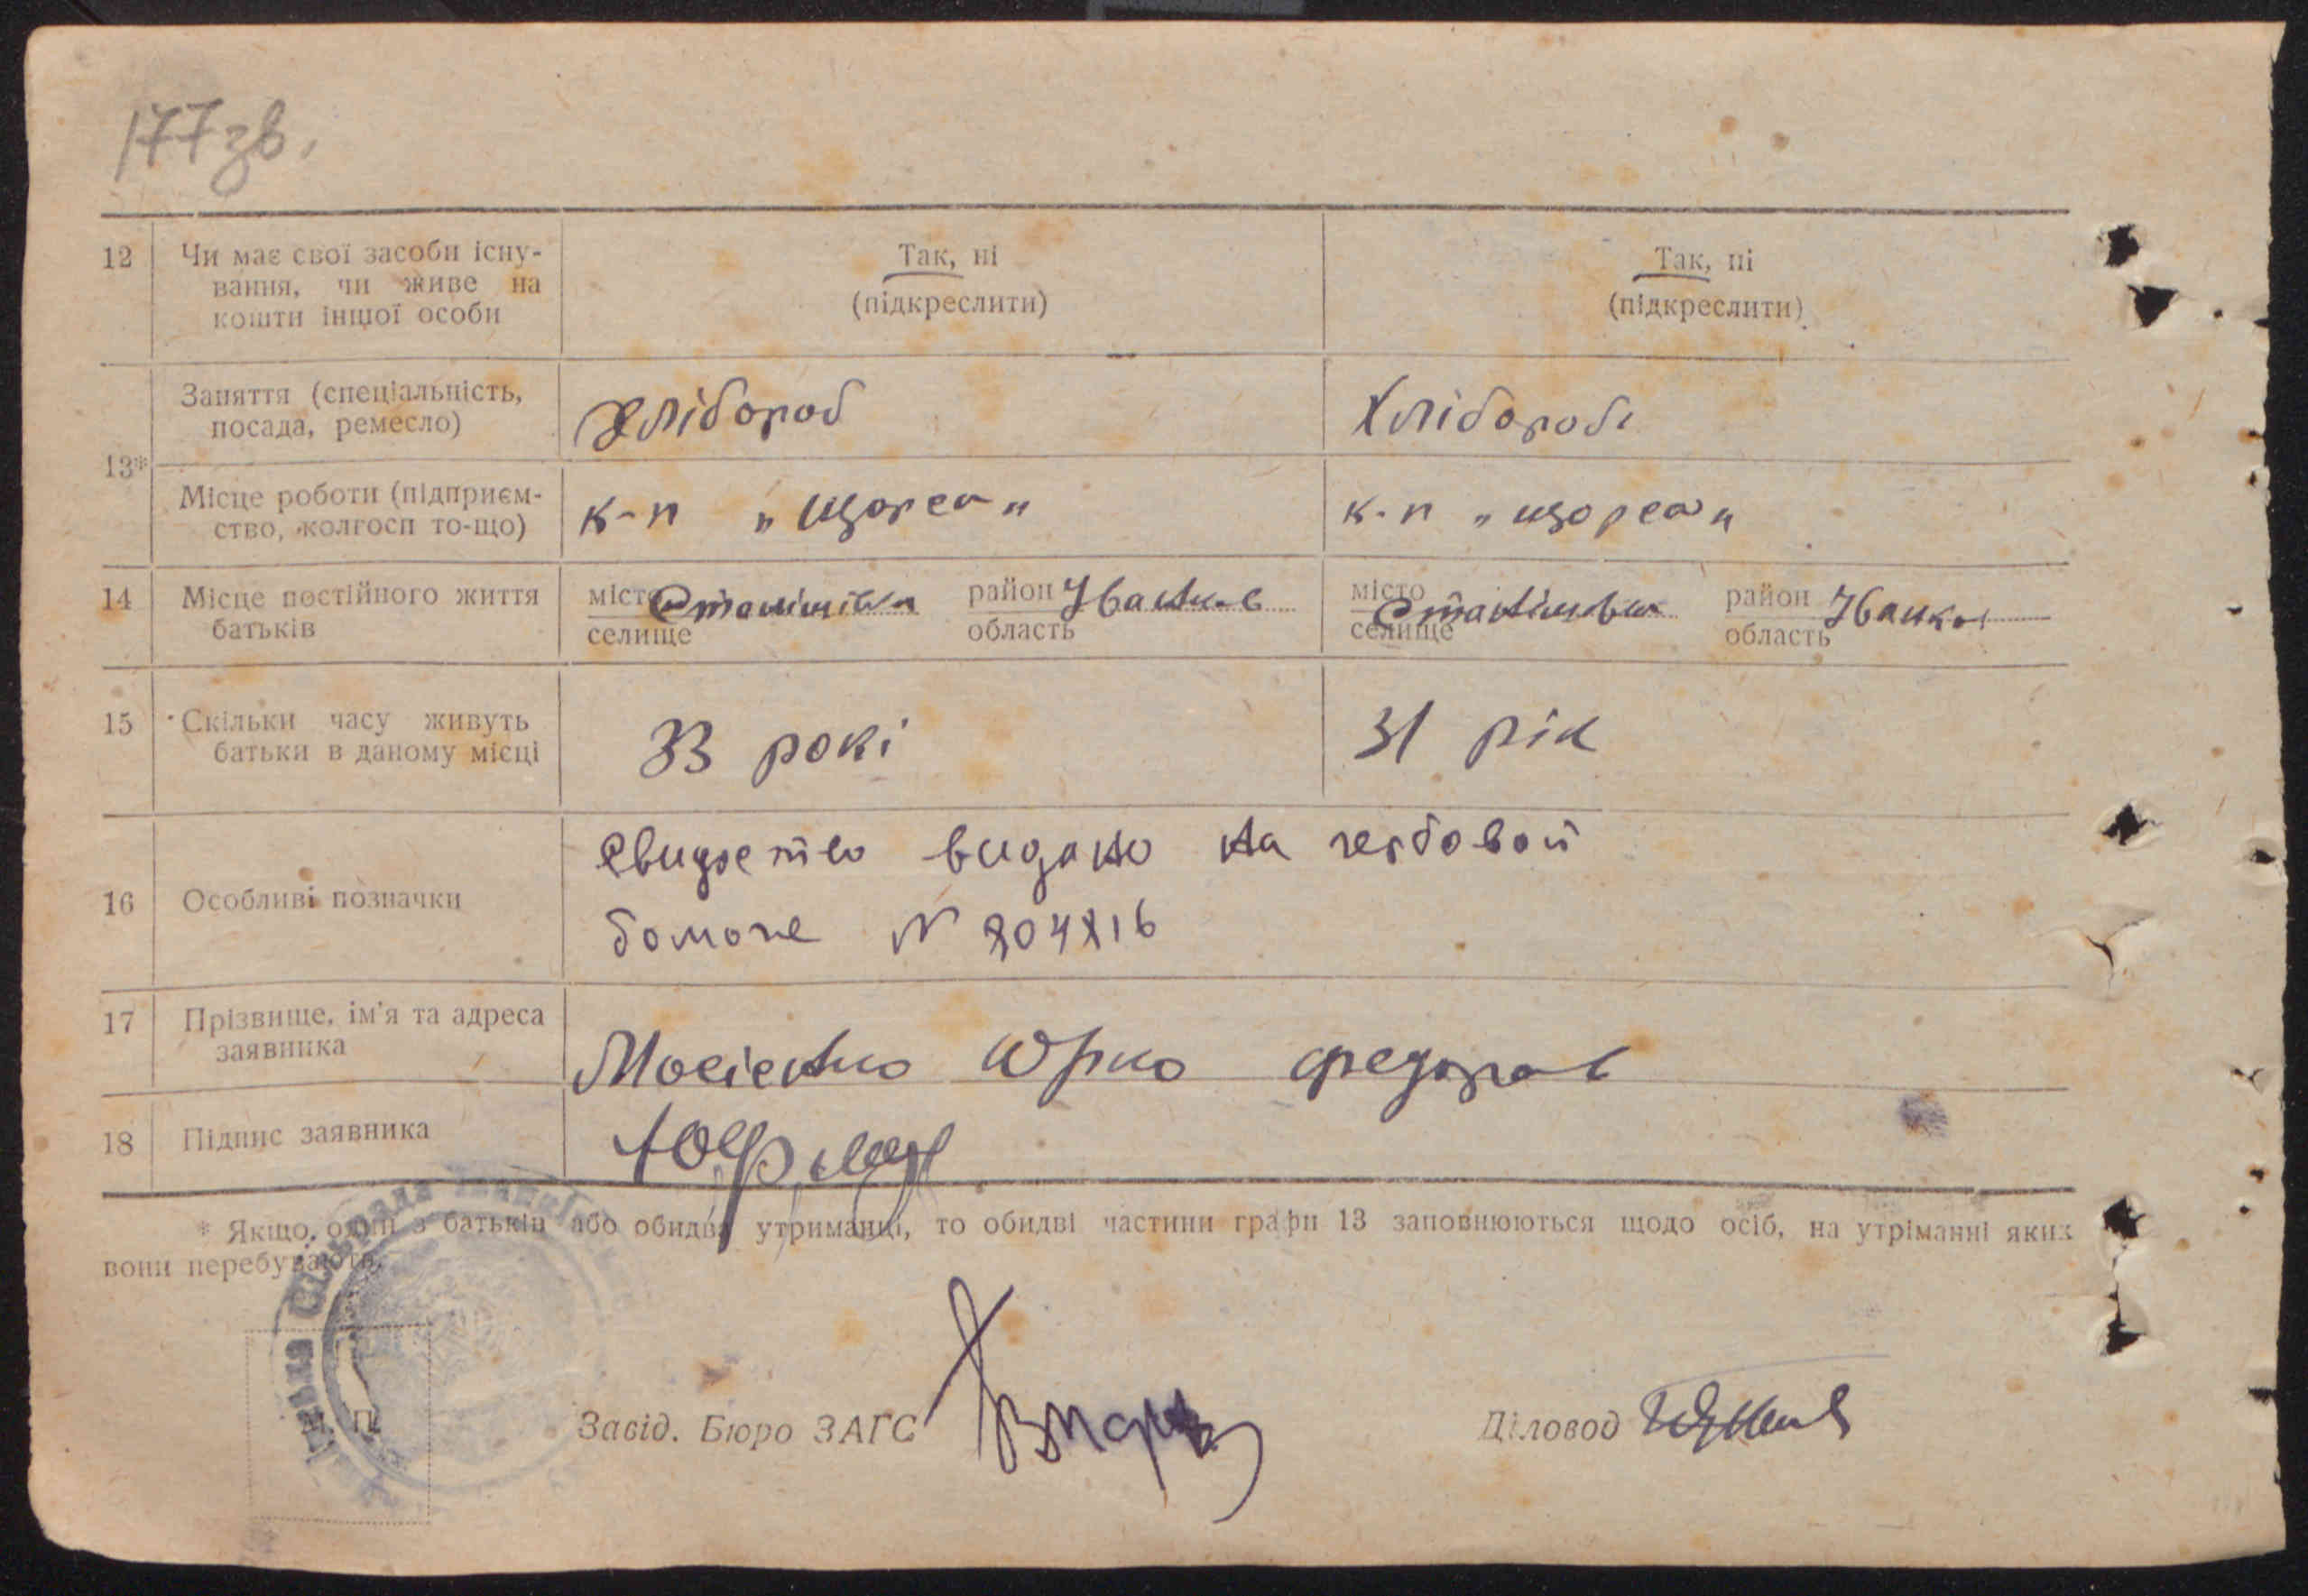 177 зв.
12 Чи має свої засоби існу-
вання, чи живе на
кошти іншої особи
Так, ні
(підкреслити)
Так, ні
(підкреслити)
13*
Заняття (спеціальність,
посада, ремесло)
Хлібороб
Хлібороб
Місце роботи (підприєм-
ство, колгосп то-що)
к-п „Щорса"
к-п „щорса"
14 Місце постійного життя
батьків
місто
селище
район Іванков
область
місто
селище
район Іванков
область
15 Скільки часу живуть
батьки в даному місці
33 рокі
31 рік
16 Особливі позначки
видано на гербовой
N 804816
17 Прізвище, ім'я та адреса
заявника
Мосієнко Юрко Федоров
18 Підпис заявника
* Якщо, один з батьків або обидва утриманці, то обидві частини графи 13 заповнюються щодо осіб, на утріманні яких
вони перебувають.
М. П.
Завід. Бюро ЗАГС
Діловод